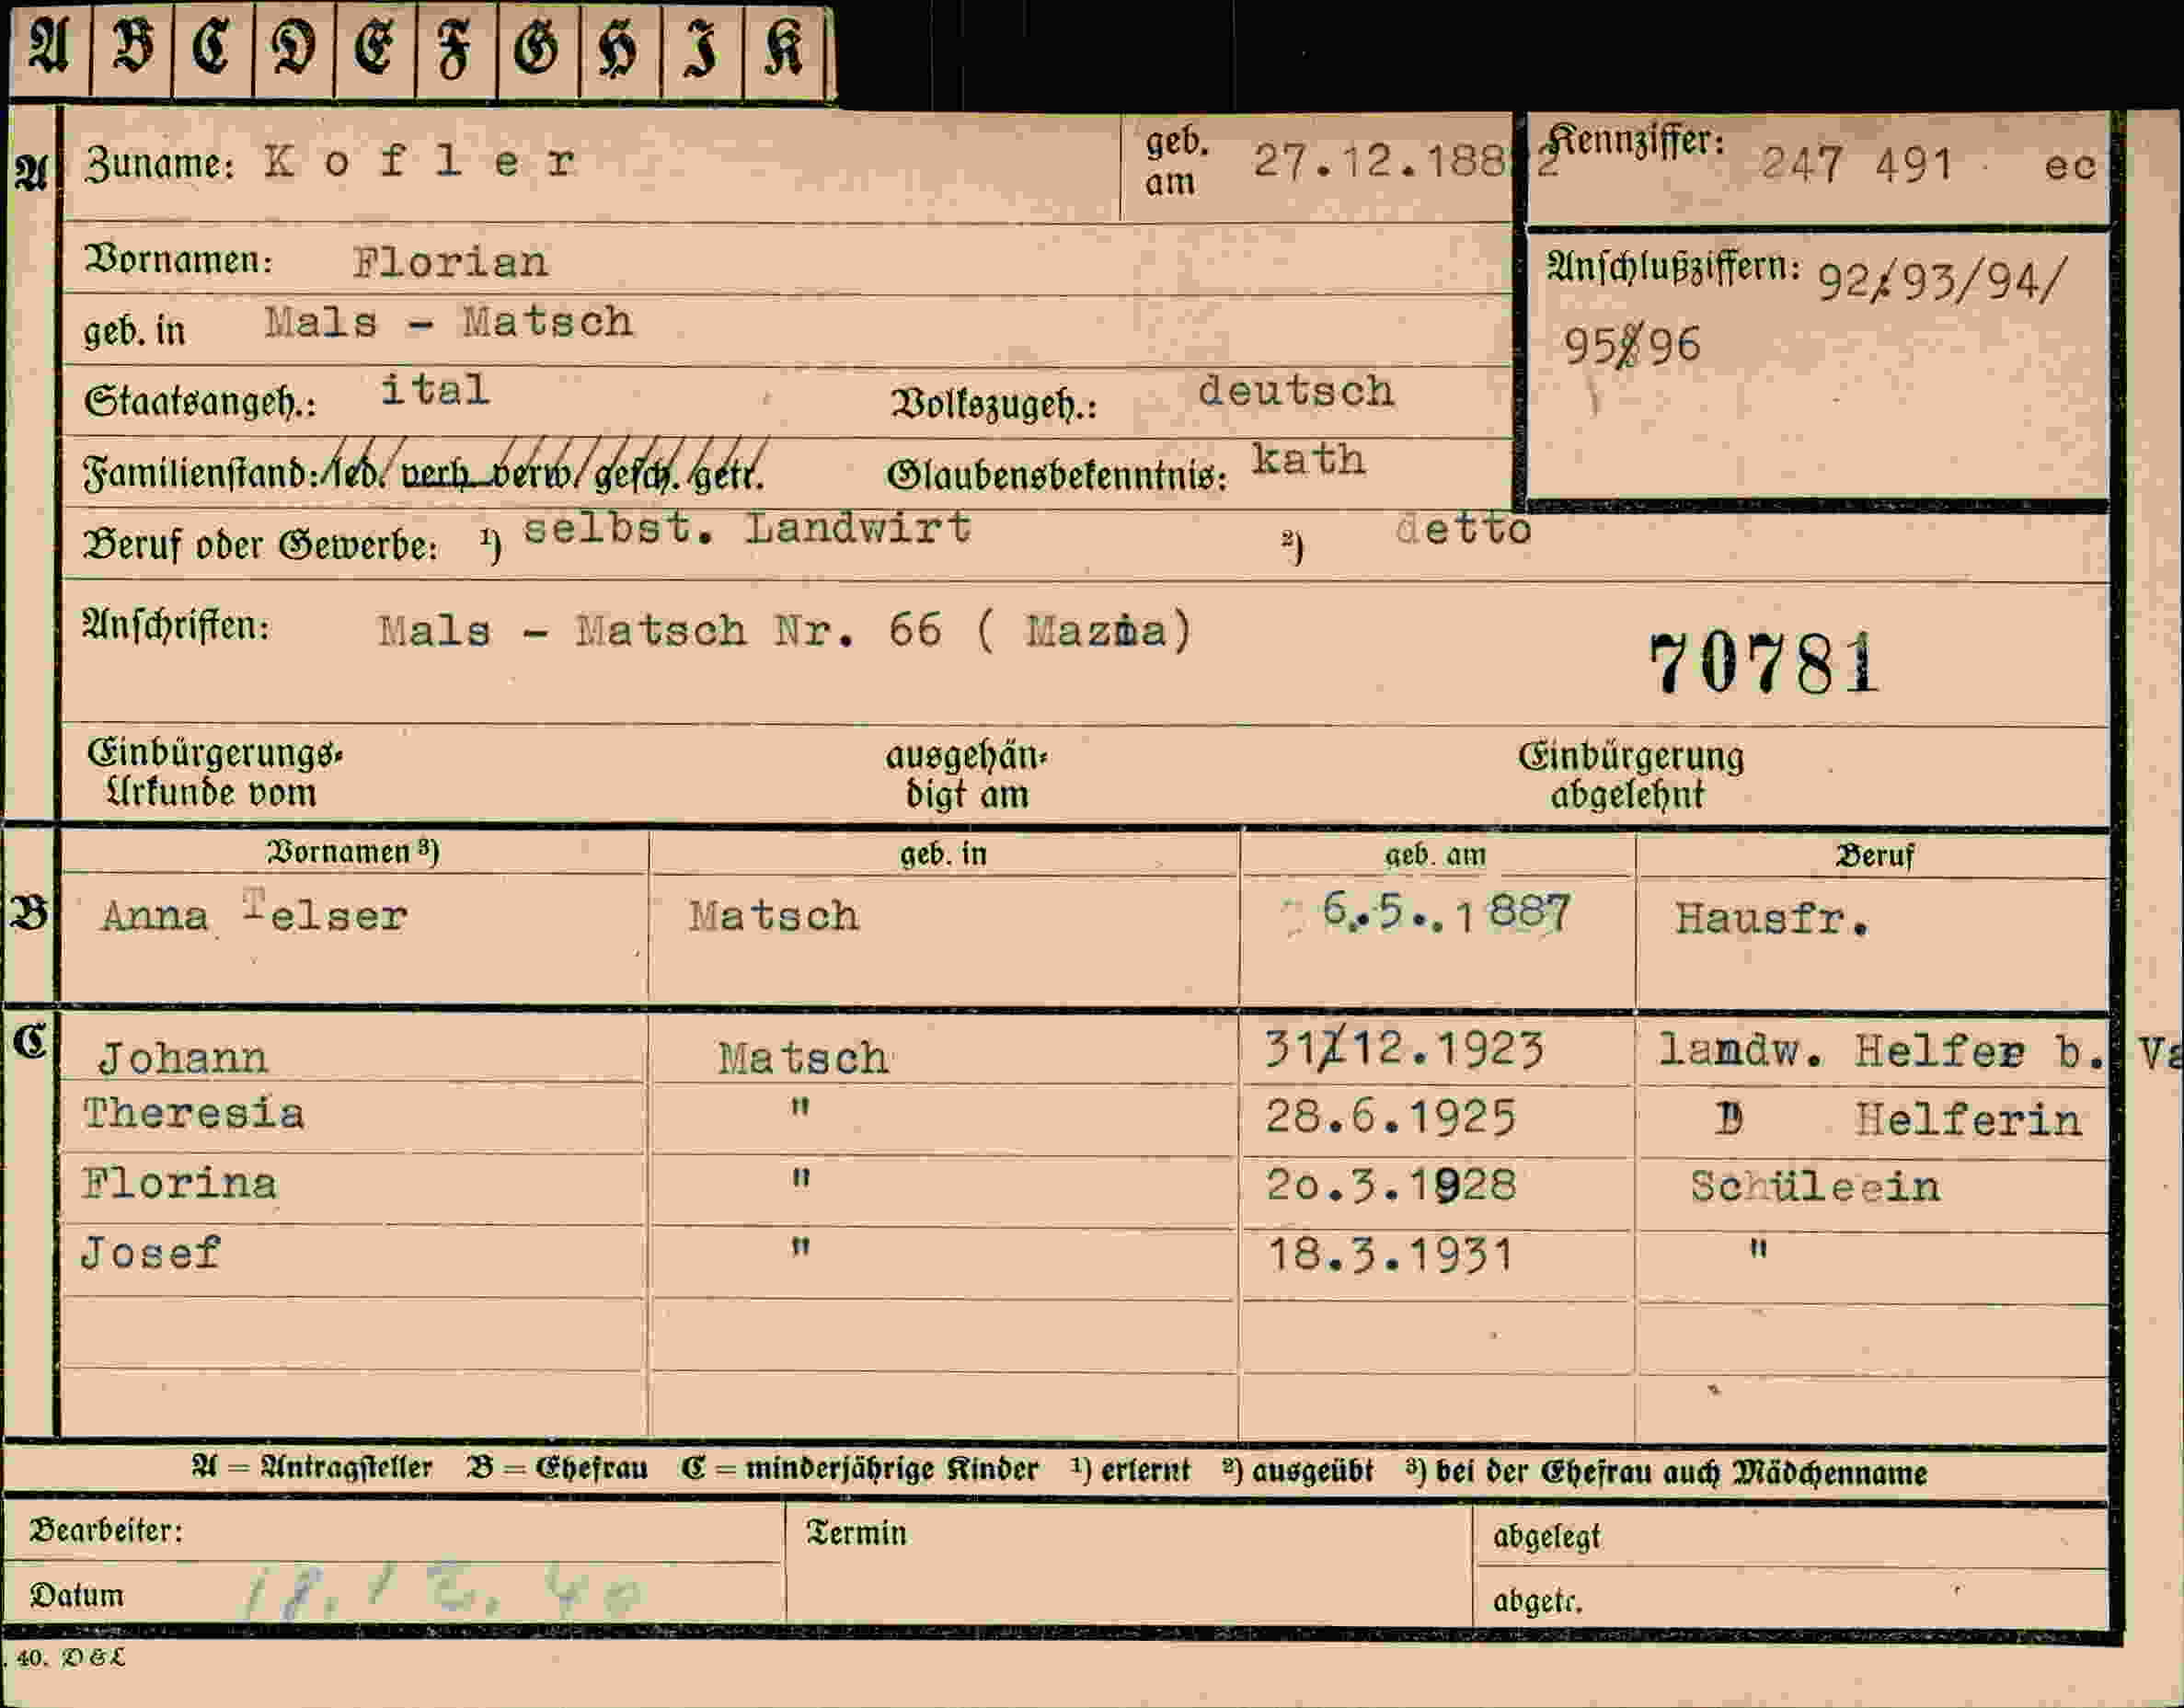 A B C D E F G H I K
A Zuname: Kofler geb. am 27.12.1882 Kennziffer: 247 491 ec
Vornamen: Florian
Anschlußziffern: 92/93/94/
geb. in Mals - Matsch
95/96
Staatsangeh.: ital Volkszugeh.: deutsch
Familienstand: led. verh. verw. gesch. getr. Glaubensbekenntnis: kath
Beruf oder Gewerbe: 1) selbst. Landwirt 2) detto
Anschriften: Mals - Matsch Nr. 66 (
70781
Einbürgerungs- ausgehän- Einbürgerung
Urkunde vom digt am abgelehnt
Vornamen 3) geb. in geb. am Beruf
B Anna Telser Matsch 6.5.1887 Hausfr.
C Johann Matsch 31.12.1923 landw. Helfer b. Va
Theresia " 28.6.1925 Helferin
Florina " 20.3.1928 Schüleein
Josef " 18.3.1931 "
A = Antragsteller B = Ehefrau C = minderjährige Kinder 1) erlernt 2) ausgeübt 3) bei der Ehefrau auch Mädchenname
Bearbeiter: Termin abgelegt
Datum 18.12.40 abgetr.
. 40. D & L